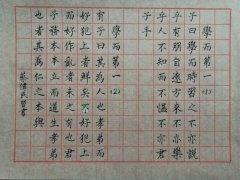 學而第一(1)
子曰學而時習之不亦說
乎有朋自遠方來不亦樂
乎人不知而不慍不亦君
子乎
學而第一(2)
有子曰其為人也孝弟而
好犯上者鮮矣不好犯上
而好作亂者未之有也君
子務本本立而道生孝弟
也者其為仁之本與
蔡偉民習書